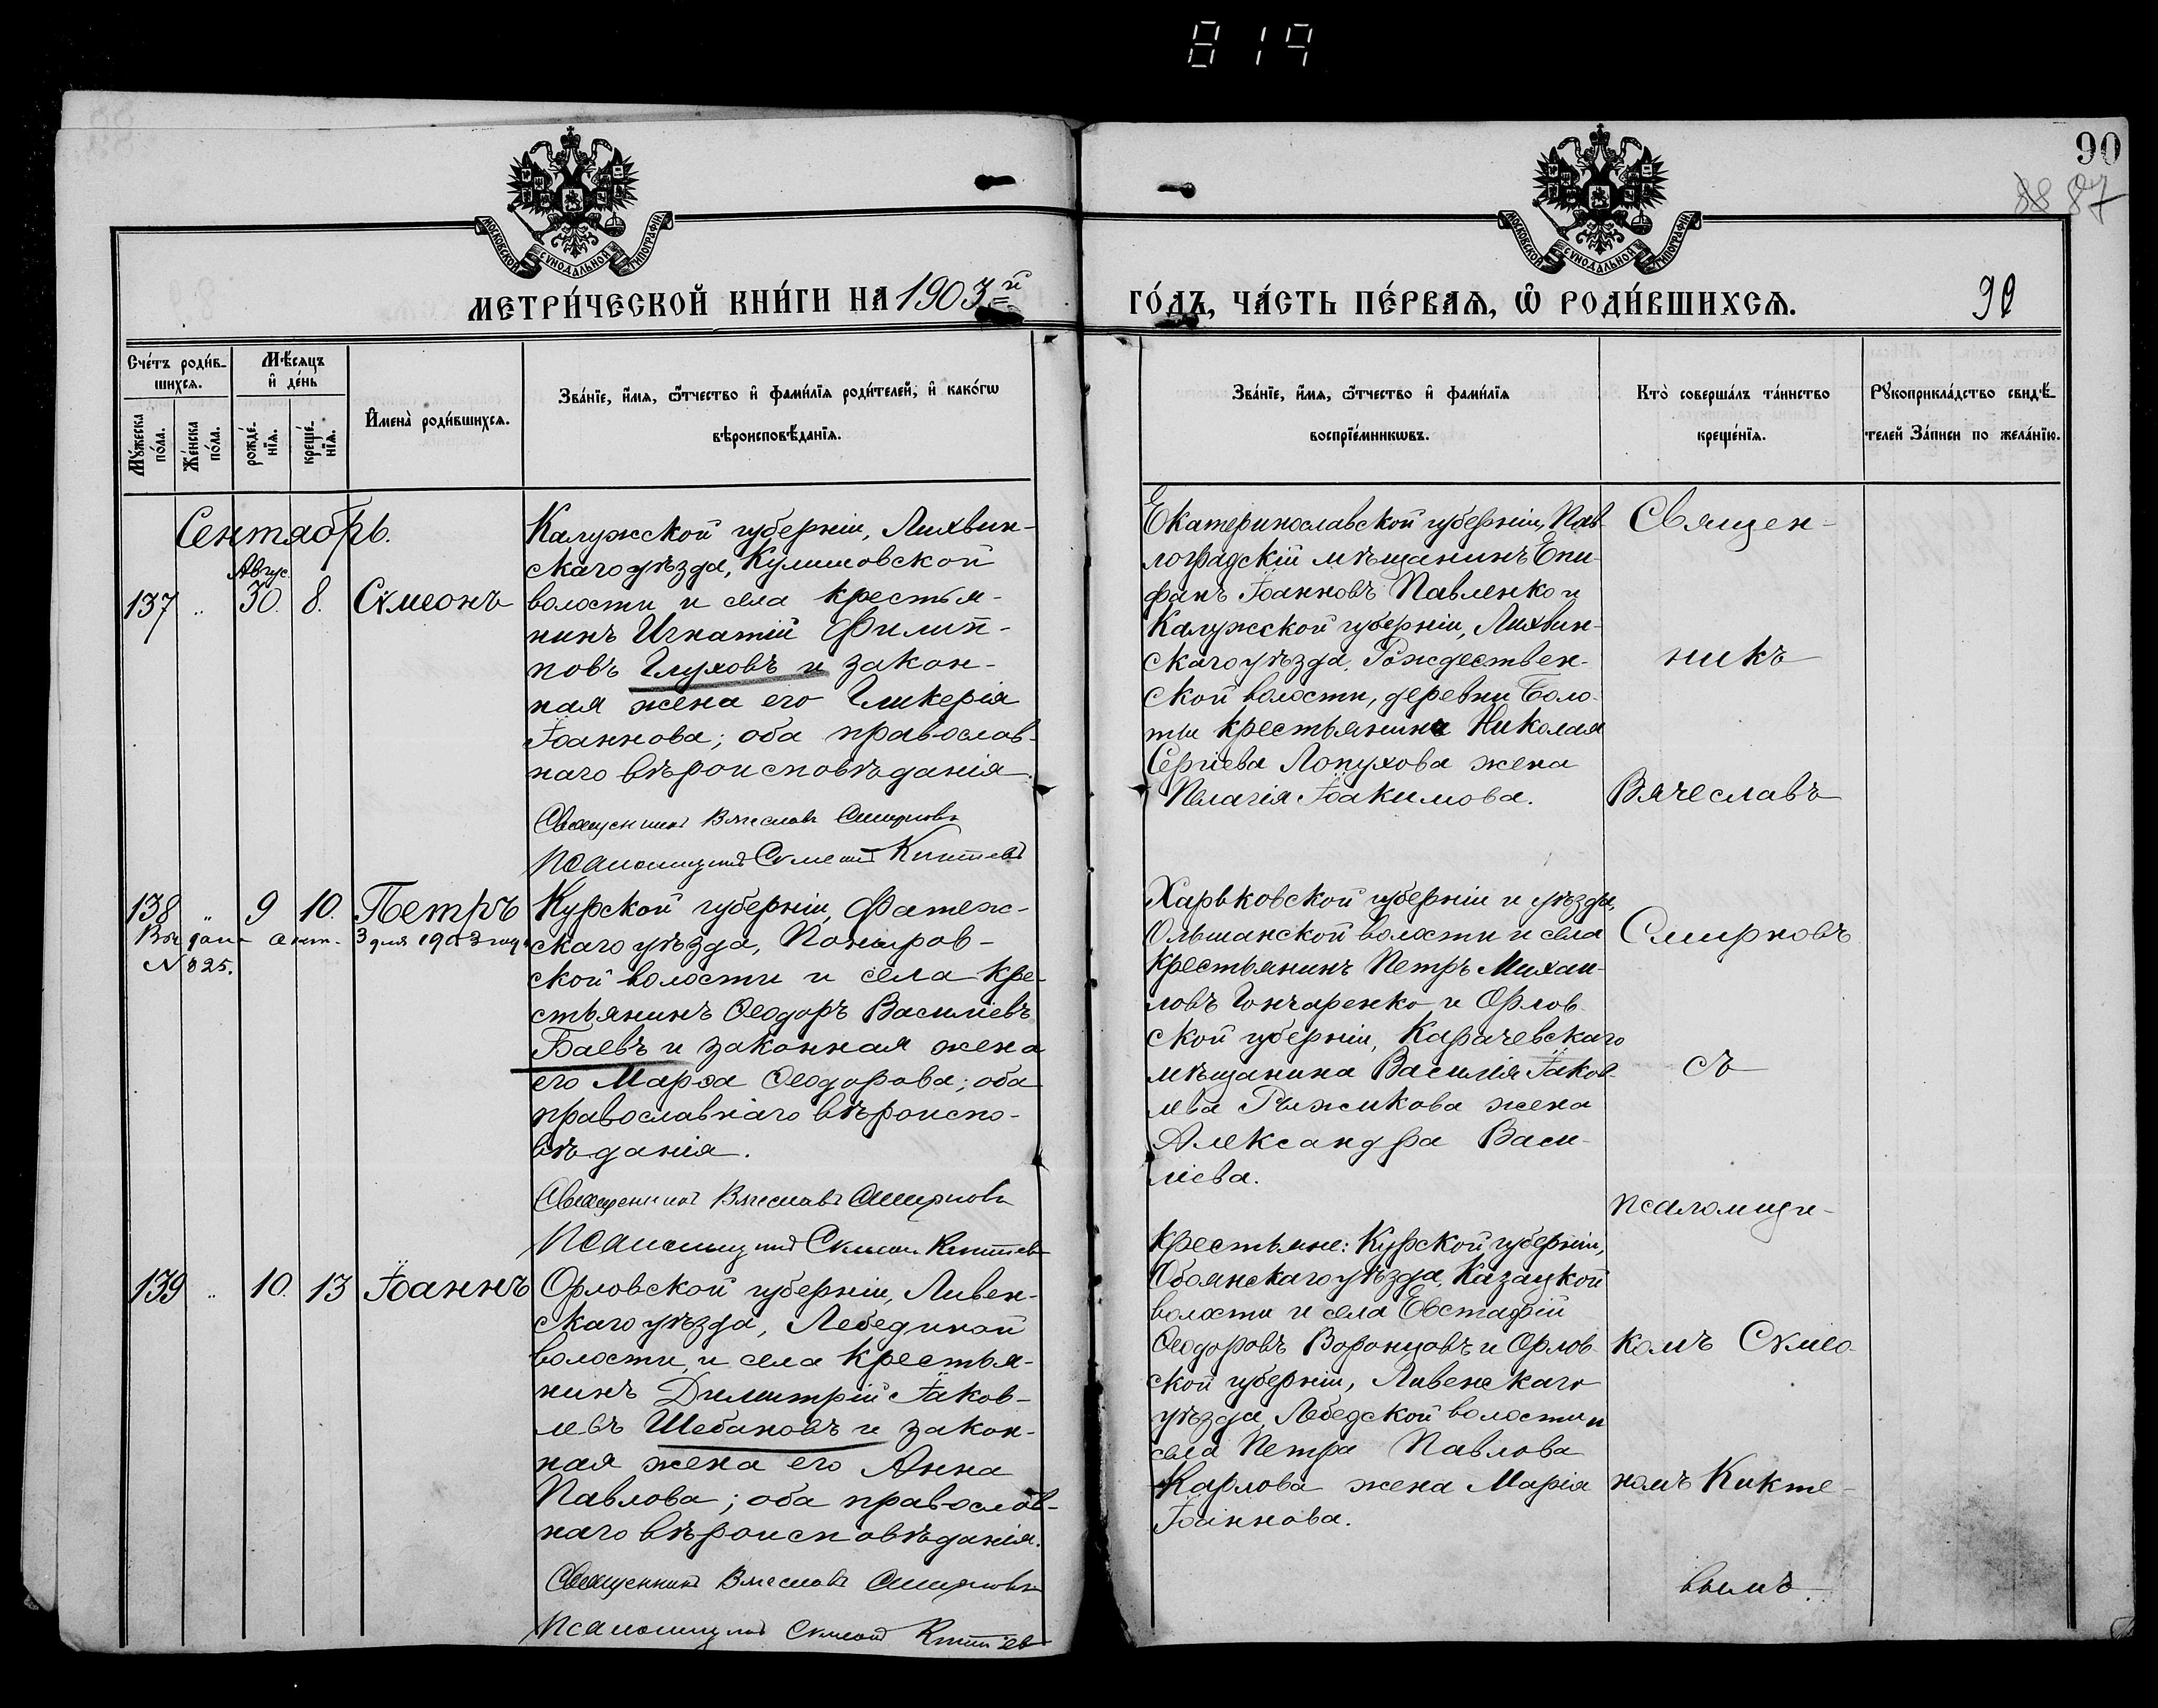 819
90
88 87
МОСКОВСКОЙ СѴНОДАЛЬНОЙ ТИПОГРАФІИ
МОСКОВСКОЙ СѴНОДАЛЬНОЙ ТИПОГРАФІИ
МЕТРИ́ЧЕСКОЙ КНИ́ГИ НА 1903=й
ГО́ДЪ, ЧА́СТЬ ПЕ́РВАѦ, Ѡ҆ РОДИ́ВШИХСѦ.
Сче́тъ роди́в-
шихсѧ.
Мꙋ́жеска по́ла.
Же́нска по́ла.
Мѣ́сѧцъ
и҆ де́нь
рожде́-
нїѧ.
креще́-
нїѧ.
И҆мена̀ роди́вшихсѧ.
Зва́нїе, и҆́мѧ, ѻ҆́тчество и҆ фами́лїѧ роди́телей, и҆ како́гѡ
вѣроисповѣ́данїѧ.
Зва́нїе, и҆́мѧ, ѻ҆́тчество и҆ фами́лїѧ
воспрїе́мникѡвъ.
Кто̀ соверша́лъ та́инство
креще́нїѧ.
Рꙋкоприкла́дство свидѣ́-
телей За́писи по жела́нїю.
Сентябрь.
Авгус.
137 " 30. 8. Сѵмеонъ
Калужской губерніи, Лихвин-
скаго уѣзда, Кулешовской
волости и села крестья-
нинъ Игнатій Филип-
повъ Глуховъ и закон-
ная жена его Гликерія
Іоаннова; оба православ-
наго вѣроисповѣданія.
Священникъ Вячеславъ Смирновъ
Псаломщикъ Сѵмеонъ Киктевъ
Екатеринославской губерніи, Пав-
лоградскій мѣщанинъ Епи-
фанъ Іоанновъ Павленко и
Калужской губерніи, Лихвин-
скаго уѣзда, Рождествен-
ской волости, деревни Боло-
ты крестьянина Николая
Сергіева Лопухова жена
Пелагія Іоакимова.
138 " 9 10. Петръ
Выдан- апт. 3 дня 1903 года
№ 825.
Курской губерніи, Фатеж-
скаго уѣзда, Поныров-
ской волости и села кре-
стьянинъ Ѳеодоръ Василіевъ
Баевъ и законная жена
его Марѳа Ѳеодорова; оба
православнаго вѣроиспо-
вѣданія.
Священникъ Вячеславъ Смирновъ
Псаломщикъ Сѵмеонъ Киктевъ
Харьковской губерніи и уѣзда,
Ольшанской волости и села
крестьянинъ Петръ Михаи-
ловъ Гончаренко и Орлов-
ской губерніи, Карачевскаго
мѣщанина Василія Іаков-
лева Рыжикова жена
Александра Васи-
ліева.
139 " 10. 13 Іоаннъ
Орловской губерніи, Ливен-
скаго уѣзда, Лебедской
волости и села крестья-
нинъ Димитрій Іаков-
левъ Шебановъ и закон-
ная жена его Анна
Павлова; оба православ-
наго вѣроисповѣданія.
Священникъ Вячеславъ Смирновъ
Псаломщикъ Сѵмеонъ Киктевъ
Крестьяне: Курской губерніи,
Обоянскаго уѣзда, Казацкой
волости и села Евстафій
Ѳеодоровъ Воронцовъ и Орлов-
ской губерніи, Ливенскаго
уѣзда, Лебедской волости и
села Петра Павлова
Карлова жена Марія
Іоаннова.
Священ-
никъ
Вячеславъ
Смирновъ
съ
псаломщи-
комъ Сѵмео-
номъ Кикте-
вымъ.